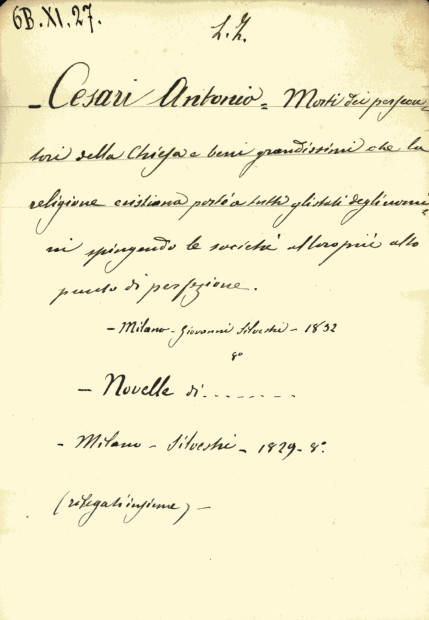 6B.XI.27.
L.Z.
- Cesari Antonio = Morti dei persecu-
tori della Chiesa e beni grandissimi che la
religione cristiana portò a tutti gli stati degli uomi-
ni spingendo le società al loro più alto
punto di perfezione.
- Milano - Giovanni Silvestri - 1832
8°
- Novelle di........
- Milano - Silvestri - 1829 - 8°.
(rilegati insieme) -